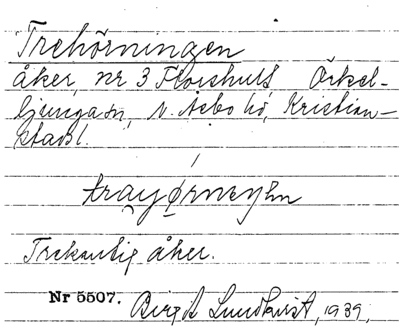 Trehörningen
åker, nr 3 Floishult Örkel-
ljunga sn, N. Åsbo hd, Kristian-
stads l.
Trekantig åker.
Nr 5507. Birgit Lundkvist, 1939.